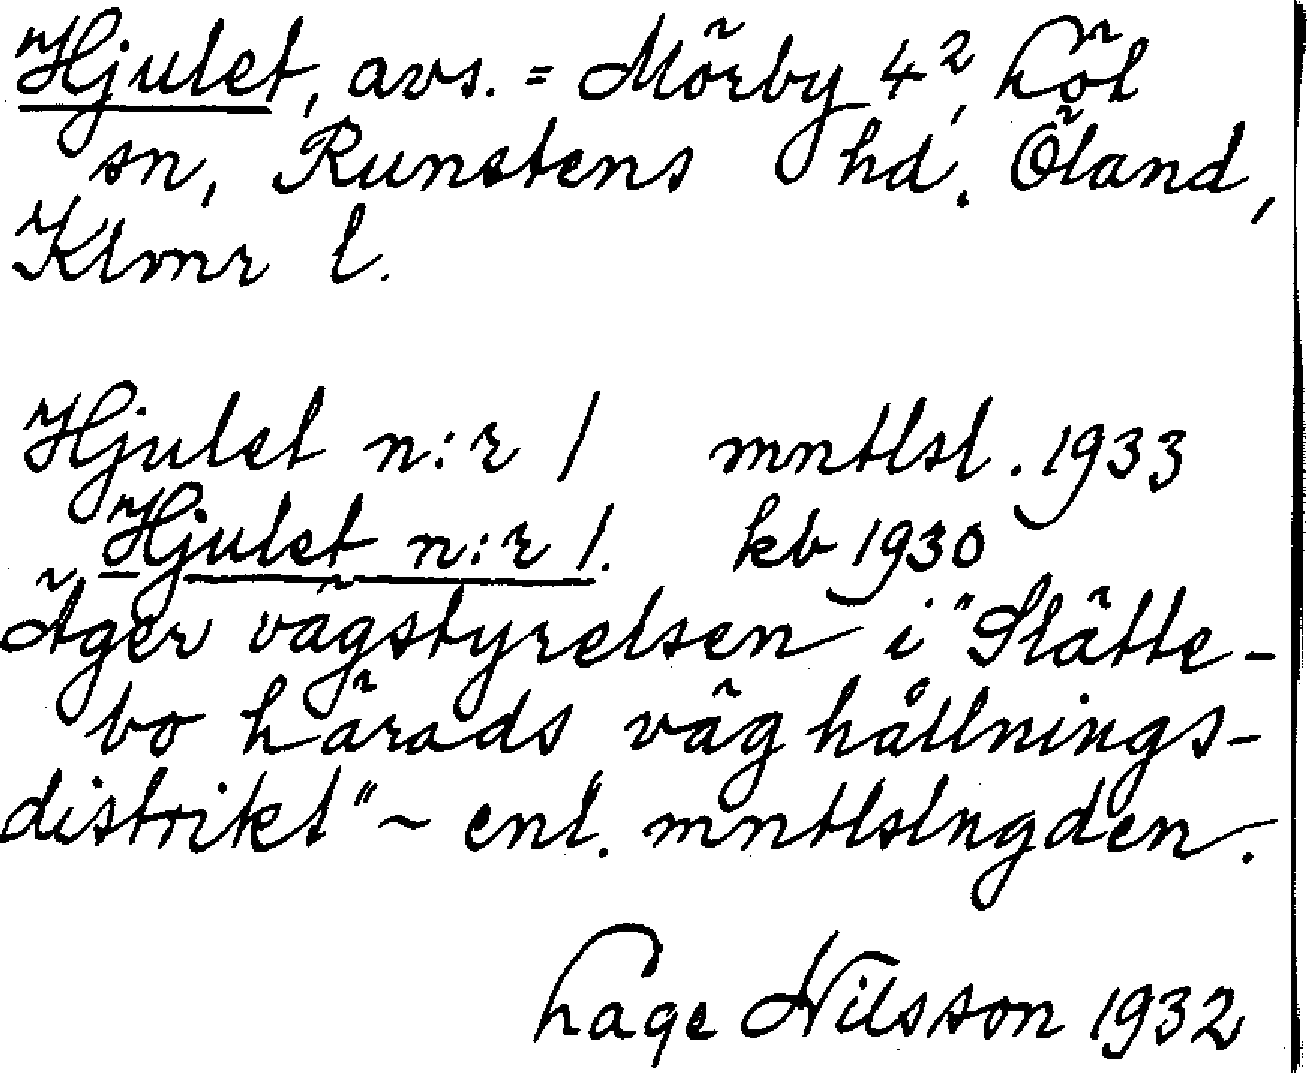 Hjulet, avs. = Mörby 4², Löt
sn, Runstens hd. Öland,
Klmr l.
Hjulet n:r 1 mntlsl. 1933
Hjulet n:r 1. kb 1930
Äger vägstyrelsen i "Slätte-
bo härads väghållnings-
distrikt" ~ enl. mntlslngden.
Lage Nilsson 1932